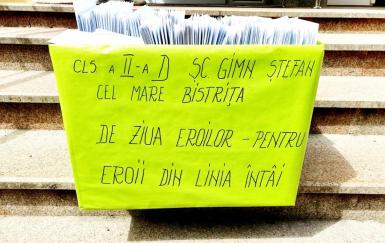 CLS a II-a D ȘC GIMN ȘTEFAN
CEL MARE BISTRIȚA
DE ZIUA EROILOR - PENTRU
EROII DIN LINIA ÎNTÂI